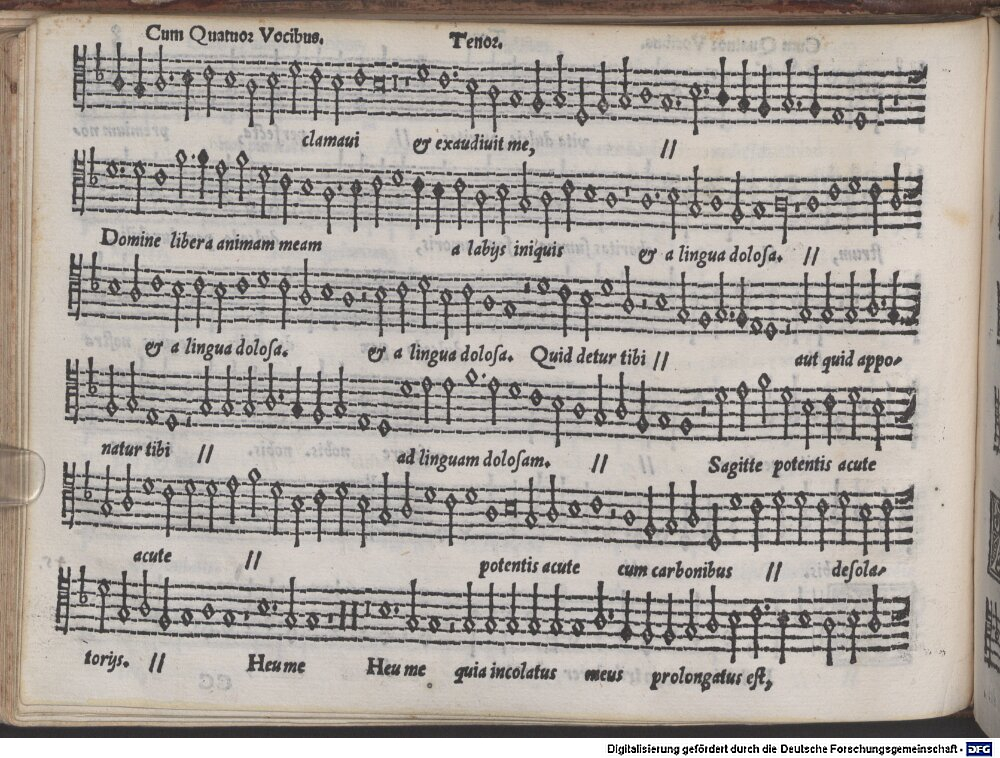 Cum Quatuor Vocibus. Tenor.
clamaui & exaudiuit me, //
Domine libera animam meam a labijs iniquis & a lingua dolosa. //
& a lingua dolosa. & a lingua dolosa. Quid detur tibi // aut quid appo-
natur tibi // ad linguam dolosam. // Sagitte potentis acute
acute // potentis acute cum carbonibus // desola-
torijs. // Heu me Heu me quia incolatus meus prolongatus est,
Digitalisierung gefördert durch die Deutsche Forschungsgemeinschaft - DFG